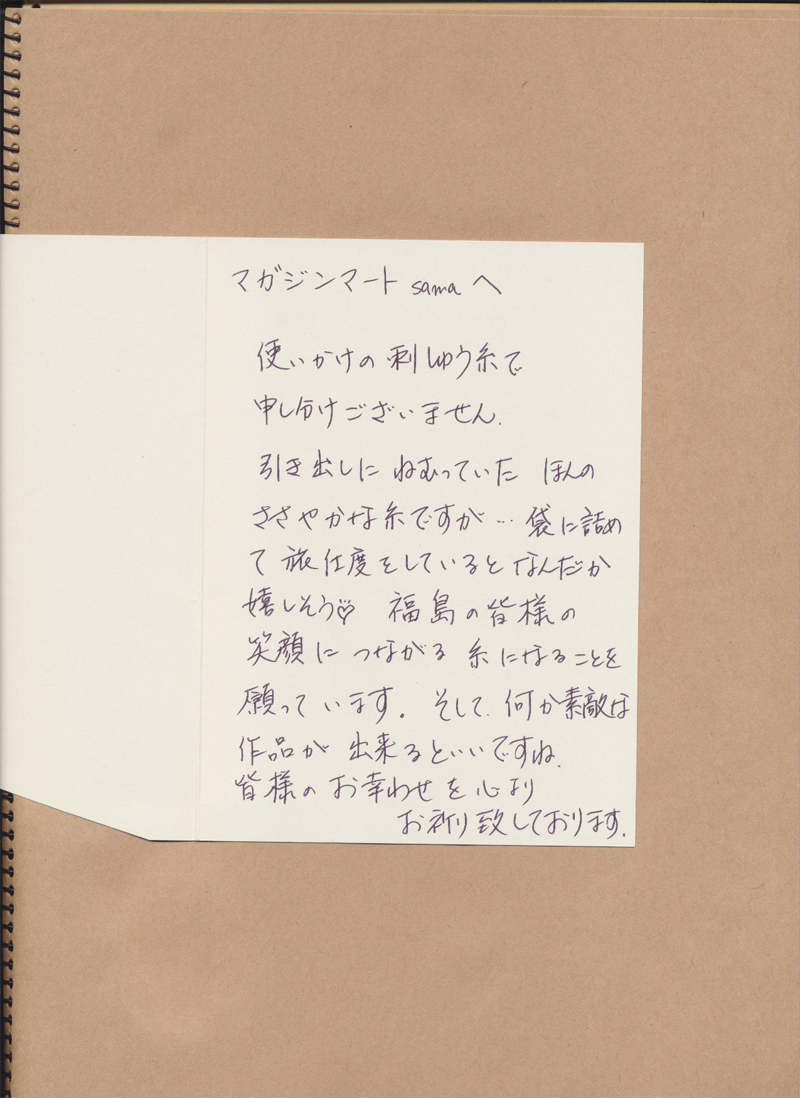 マガジンマート sama へ
使いかけの刺しゅう糸で
申し分けございません.
引き出しに ねむっていた ほんの
ささやかな糸ですが… 袋に詰め
て 旅仕度をしていると なんだか
嬉しそう♡ 福島の皆様の
笑顔に つながる 糸になることを
願って います。そして、何か素敵な
作品が 出来るといいですね.
皆様の お幸わせ を 心より
お祈り致しております.